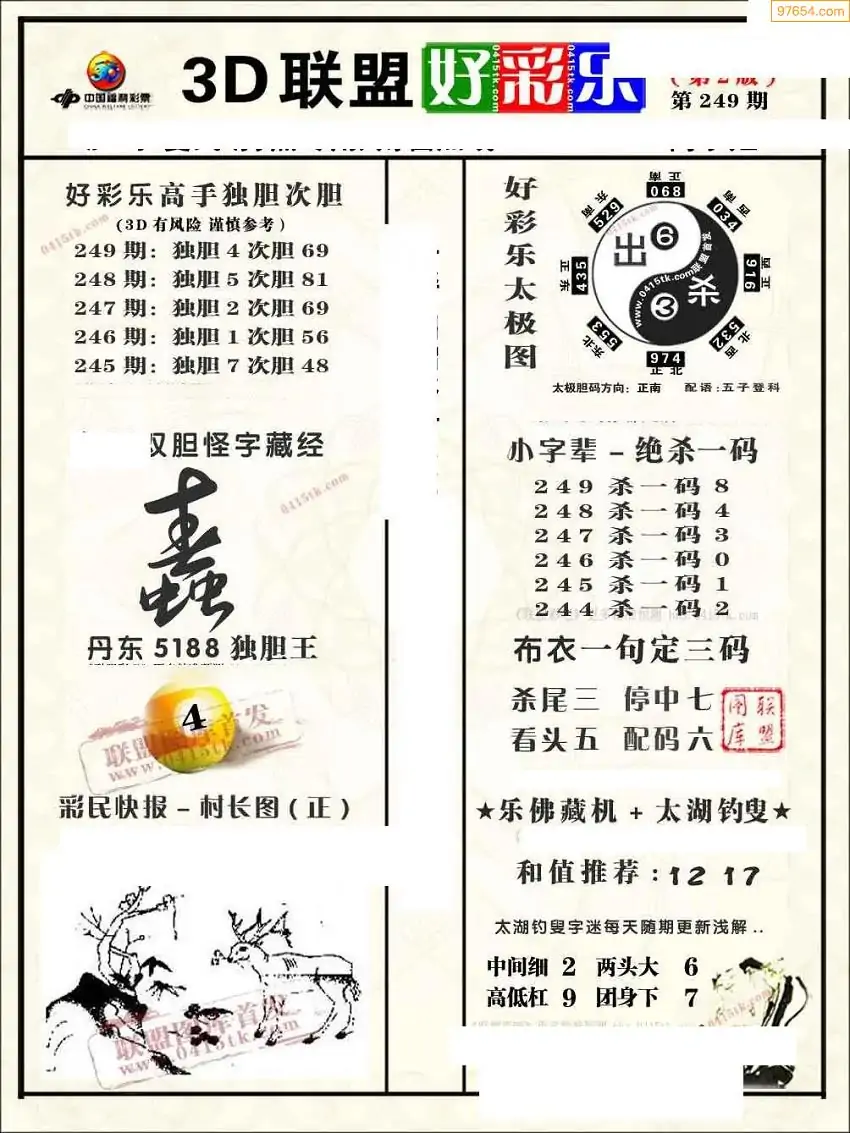 97654.com
中国福利彩票
CHINA WELFARE LOTTERY
3D联盟好彩乐
0415tk.com
0415tk.com
0415tk.com
(第2版)
第249期
好彩乐高手独胆次胆
(3D有风险 谨慎参考)
249期: 独胆4次胆69
248期: 独胆5次胆81
247期: 独胆2次胆69
246期: 独胆1次胆56
245期: 独胆7次胆48
0415tk.com
双胆怪字藏经
0415tk.com
丹东5188独胆王
4
联盟图库首发
www.0415tk.com
彩民快报-村长图(正)
联盟图库首发
www.0415tk.com
好彩乐太极图
正南
068
西南
034
正西
916
西北
532
974
正北
东北
553
正东
435
东南
529
出
6
杀
3
www.0415tk.com联盟首发
0415tk.com
太极胆码方向: 正南 配语:五子登科
小字辈-绝杀一码
249杀一码8
248杀一码4
247杀一码3
246杀一码0
245杀一码1
244杀一码2
布衣一句定三码
杀尾三 停中七
看头五 配码六
联盟图库
★乐佛藏机+太湖钓叟★
和值推荐:12 17
太湖钓叟字迷每天随期更新浅解..
中间细 2 两头大 6
高低杠 9 团身下 7
0415tk.com